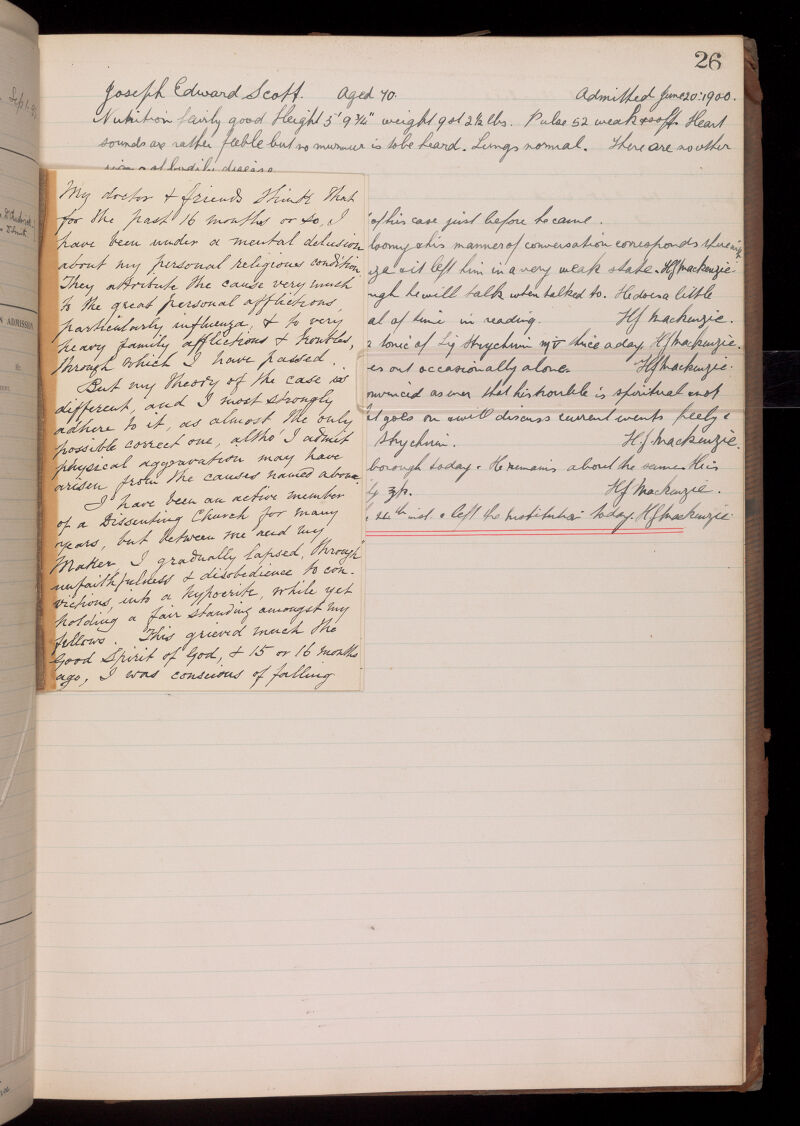 26
Joseph Edward Scott. Aged 70. Admitted June 20: 1900.
Nutrition fairly good Height 5' 9¾" weight 9 st 2½ lbs. Pulse 52 weak & soft. Heart
sounds are rather feeble but no murmur is to be heard. Lungs normal. There are no other
signs of bodily disease
My doctor & friends think that
for the past 16 months or so, I
have been under a mental delusion
about my personal religious condition.
They attribute the cause very much
to the great personal afflictions,
particularly influenza, & to very
heavy family afflictions & troubles,
through which I have passed.
But my theory of the case is
different, and I most strongly
adhere to it, as almost the only
possible correct one, altho' I admit
physical aggravation may have
arisen from the causes named above.
I have been an active member
of a Dissenting Church for many
years, but between me and my
Maker, I gradually lapsed, through
unfaithfulness & disobedience to con-
victions, into a hypocrite, while yet
holding a fair standing amongst my
fellows. This grieved much the
Good Spirit of God, & 15 or 16 months
ago, I was conscious of falling
of his case just before he came.
loomy & his manner of conversation corresponds
& it left him in a very weak state. HJ Mackenzie
ugh he will talk when talked to. He does a little
al of time in reading. HJ Mackenzie.
tonic of Liq Strychnin thrice a day HJ Mackenzie.
es out occasionally alone. HJ Mackenzie.
onvinced as ever that his trouble is spiritual & not
goes on & will discuss current events freely &
Strychnin. H.J. Mackenzie.
borough today. He remains about the same. His
HJ Mackenzie.
inst. & left the Institution today. HJ Mackenzie
Sep 1.
ADMISSION